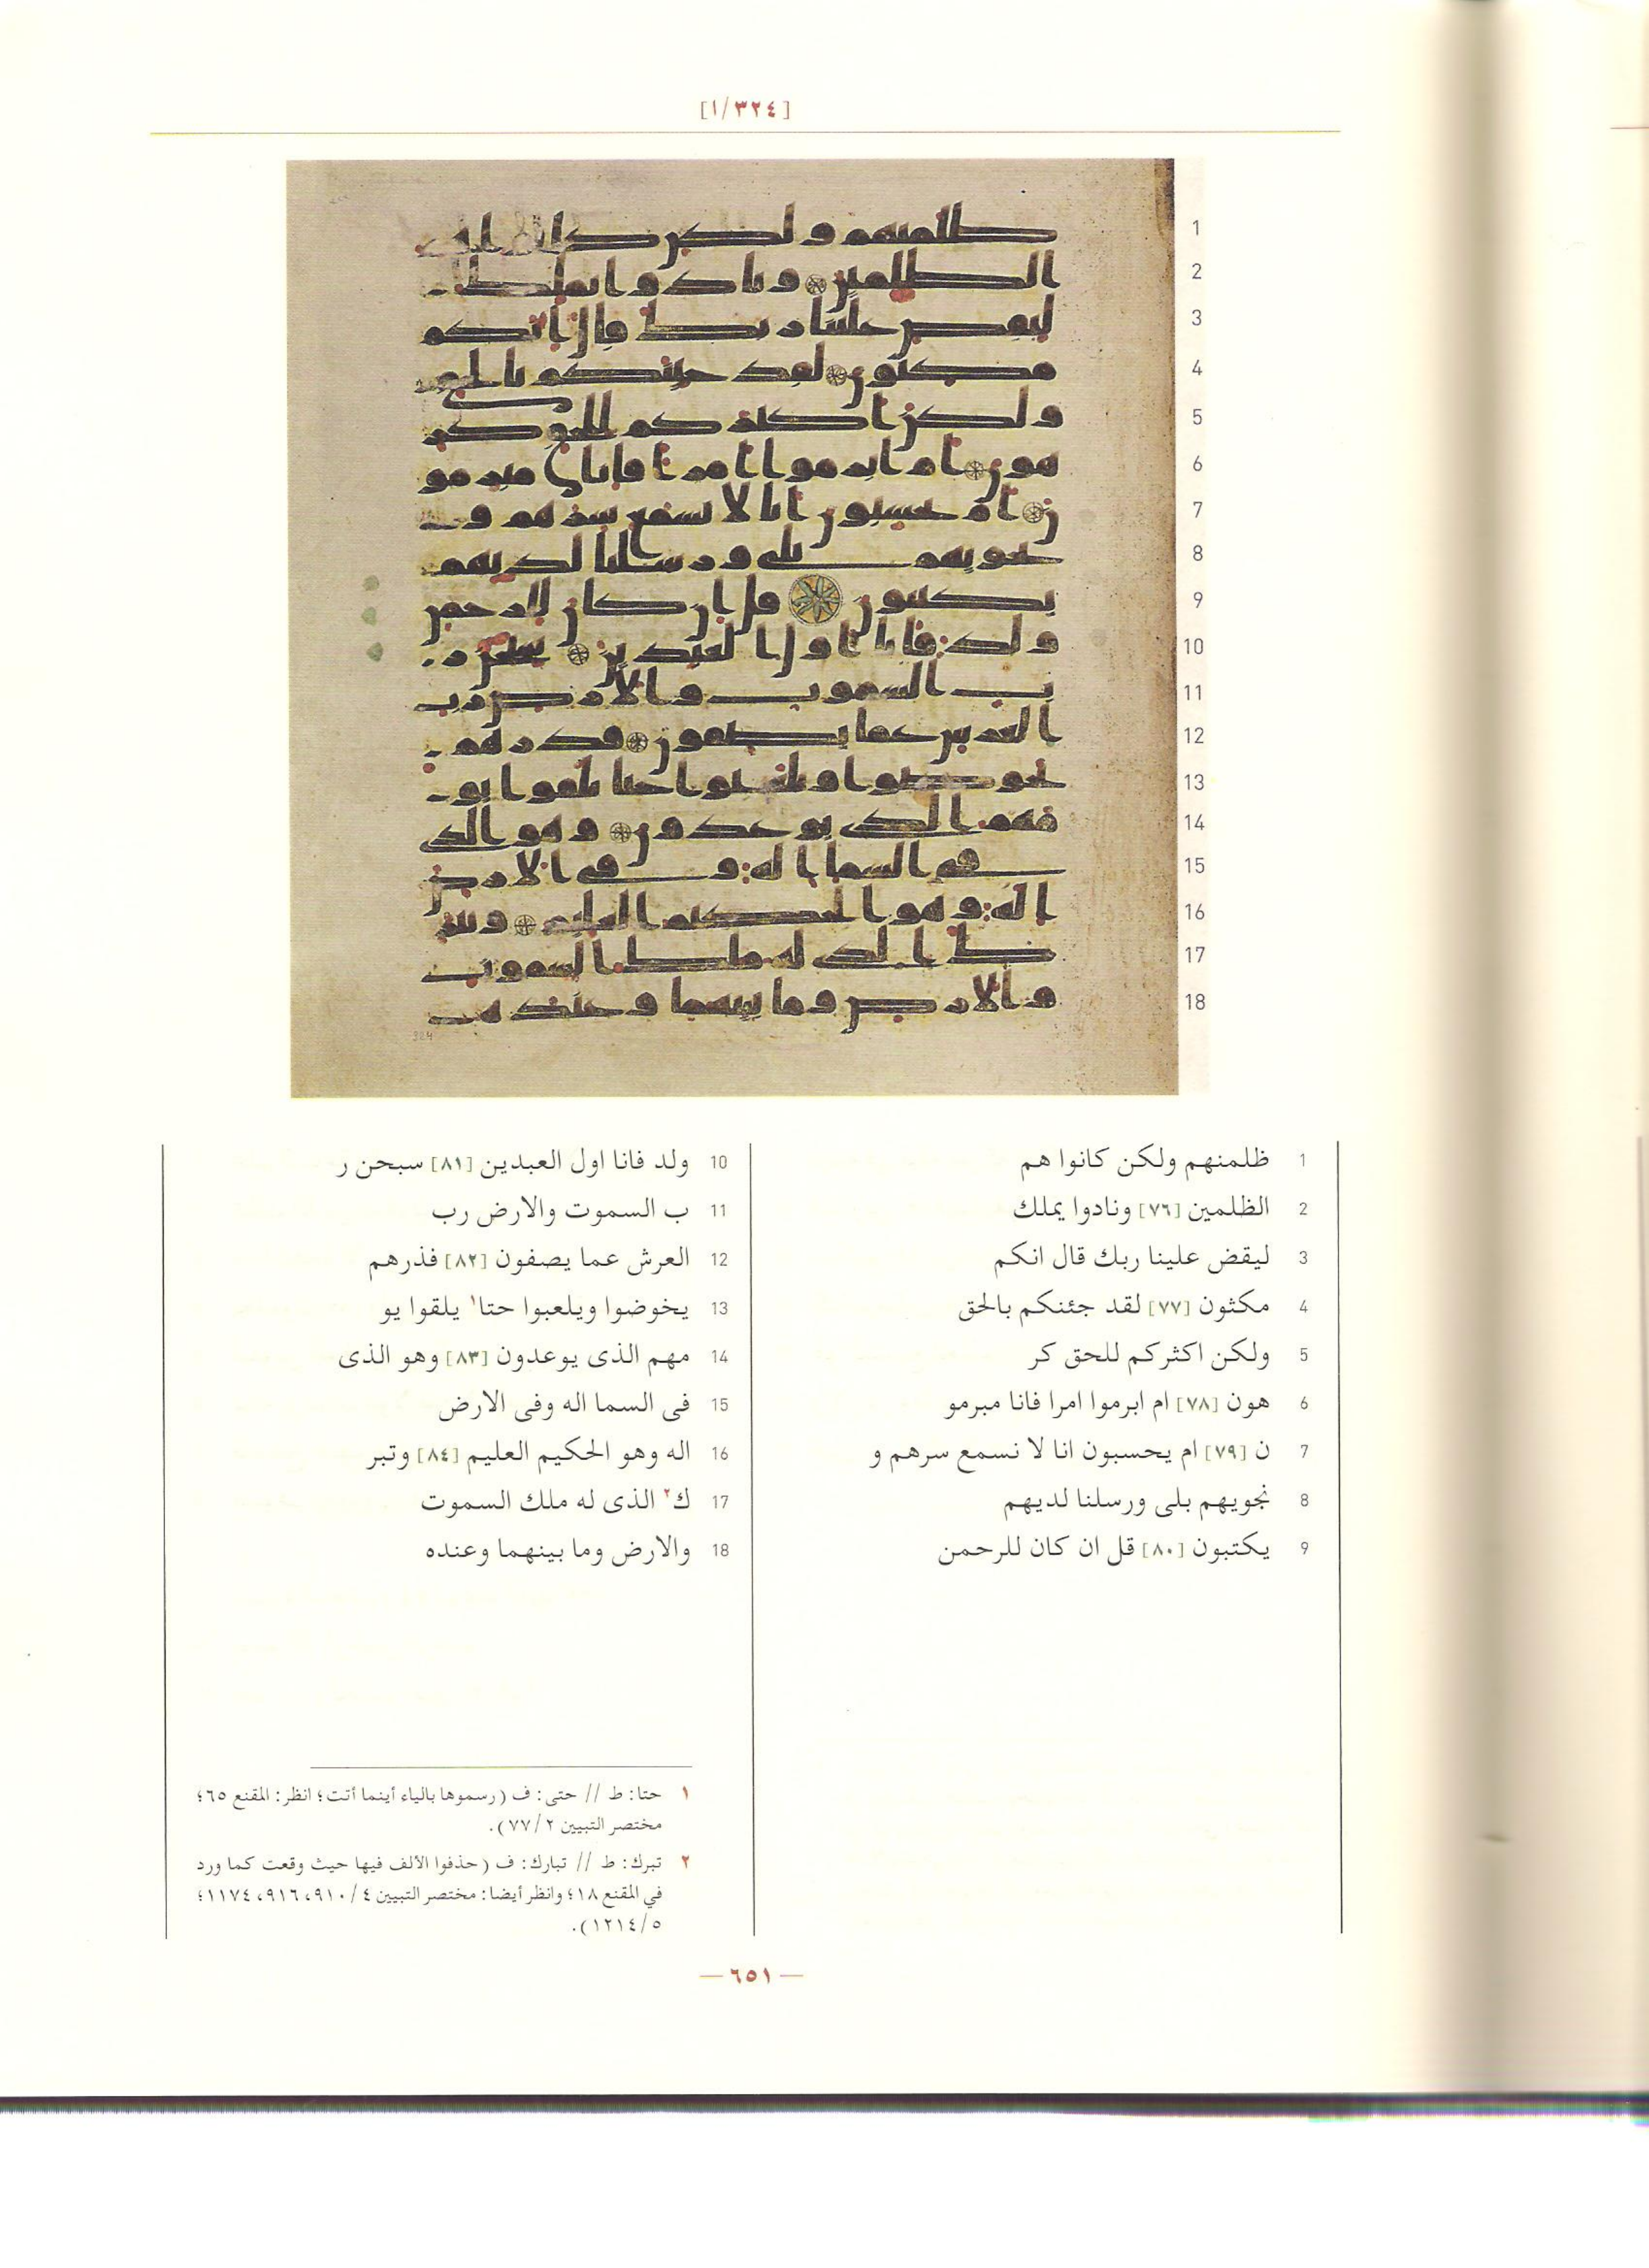 [١/٣٢٤]
1 ظلمنهم ولكن كانوا هم
2 الظلمين [٧٦] ونادوا يملك
3 ليقض علينا ربك قال انكم
4 مكثون [٧٧] لقد جئنكم بالحق
5 ولكن اكثركم للحق كر
6 هون [٧٨] ام ابرموا امرا فانا مبرمو
7 ن [٧٩] ام يحسبون انا لا نسمع سرهم و
8 نجويهم بلى ورسلنا لديهم
9 يكتبون [٨٠] قل ان كان للرحمن
10 ولد فانا اول العبدين [٨١] سبحن ر
11 ب السموت والارض رب
12 العرش عما يصفون [٨٢] فذرهم
13 يخوضوا ويلعبوا حتا١ يلقوا يو
14 مهم الذى يوعدون [٨٣] وهو الذى
15 فى السما اله وفى الارض
16 اله وهو الحكيم العليم [٨٤] وتبر
17 ك٢ الذى له ملك السموت
18 والارض وما بينهما وعنده
١ حتا: ط // حتى: ف (رسموها بالياء أينما أتت؛ انظر: المقنع ٦٥؛
مختصر التبيين ٢/٧٧).
٢ تبرك: ط // تبارك: ف (حذفوا الألف فيها حيث وقعت كما ورد
في المقنع ١٨؛ وانظر أيضا: مختصر التبيين ٤/٩١٠، ٩١٦، ١١٧٤؛
٥/١٢١٤).
— ٦٥١ —